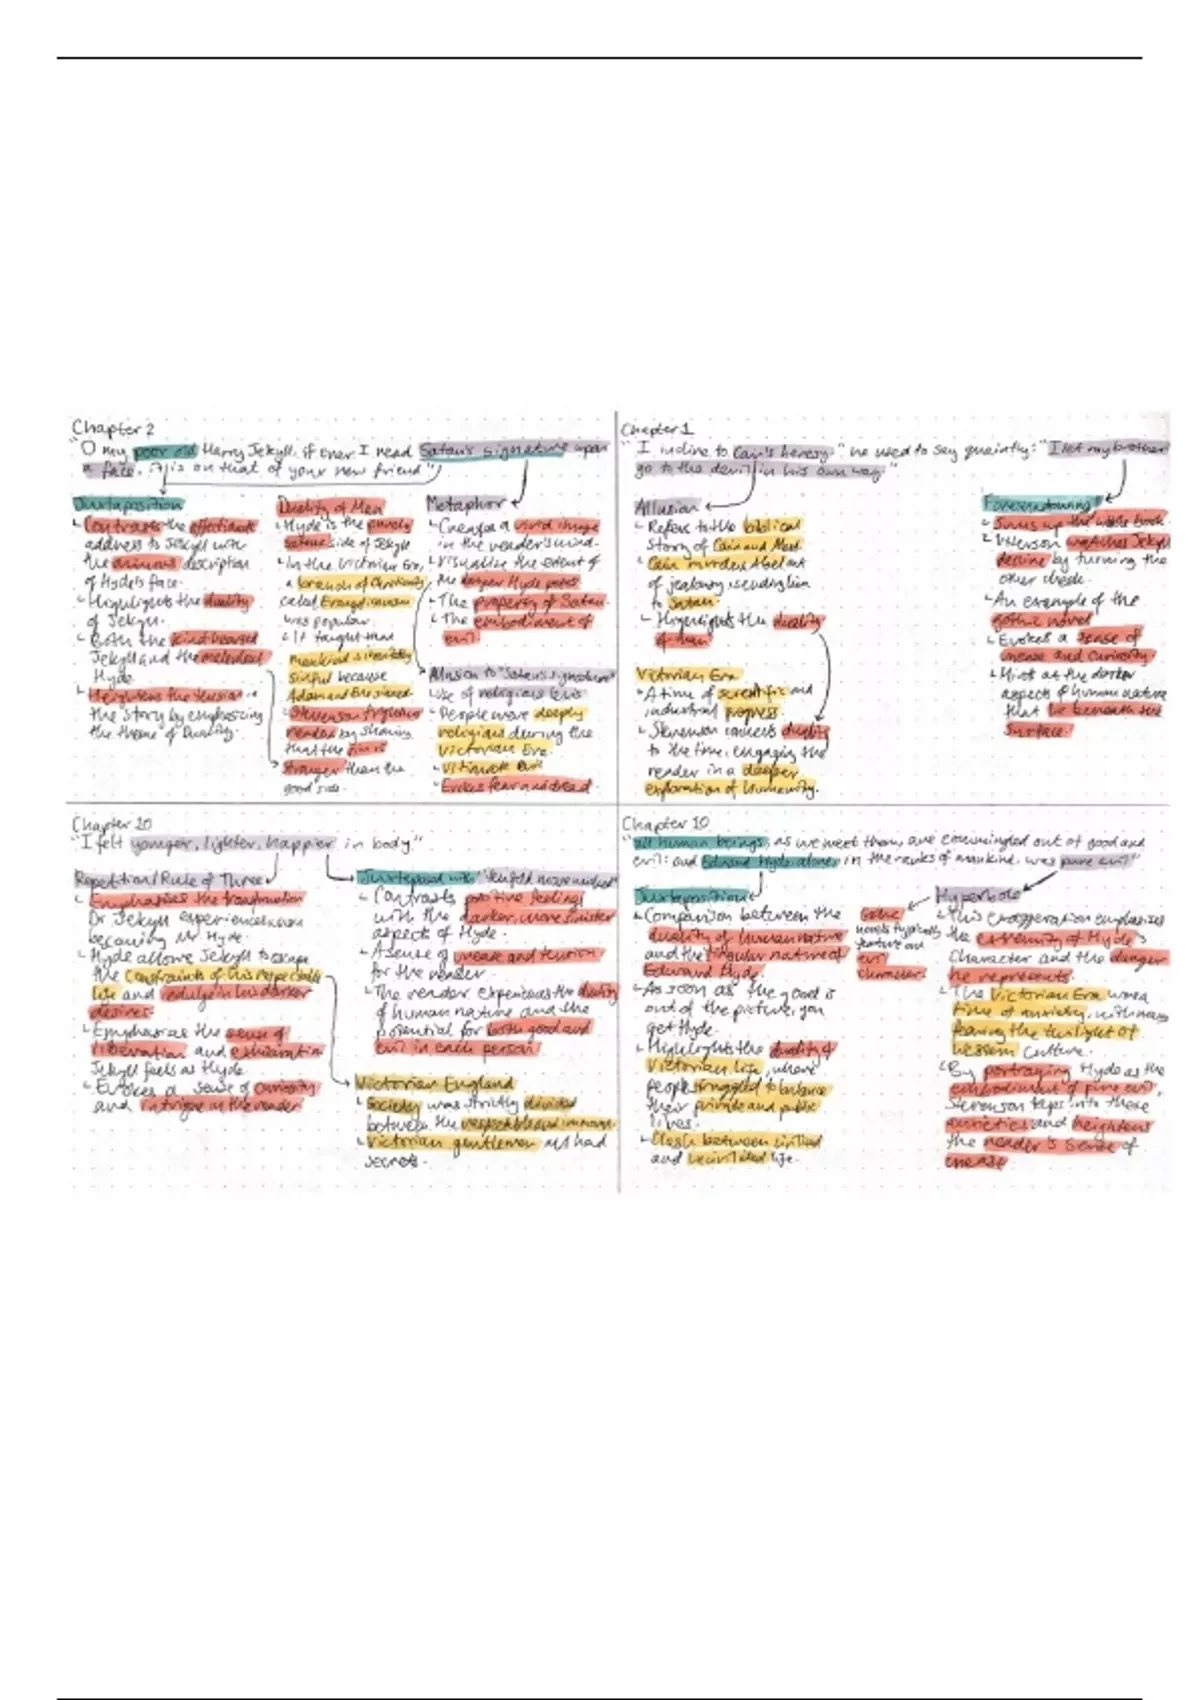 Chapter 2
"O my poor old Harry Jekyll, if ever I read Satan's signature upon
a face, it is on that of your new friend"
Juxtaposition
Contrasts the affectionate
address to Jekyll with
the ominous description
of Hyde's face.
Highlights the duality
of Jekyll.
Both the kind hearted
Jekyll and the malevolent
Hyde
Heightens the tension in
the story by emphasising
the theme of Duality.
Duality of Man
Hyde is the purely
satanic side of Jekyll
In the Victorian Era,
a branch of Christianity
called Evangelicanism
was popular.
It taught that
mankind is inevitably
sinful because
Adam and Eve sinned.
Stevenson frightens
readers by showing
that the sin is
stronger than the
good side.
Metaphor
Creates a vivid image
in the reader's mind.
Visualise the extent of
the danger Hyde poses
The property of Satan.
The embodiment of
evil
Allusion to "Satan's signature"
Use of religious lexis
People were deeply
religious during the
Victorian Era.
Ultimate evil
Evokes fear and dread
Chapter 1
"I incline to Cain's heresy," he used to say quaintly: "I let my brother
go to the devil in his own way."
Allusion
Refers to the biblical
story of Cain and Abel.
Cain murders Abel out
of jealousy, sending him
to Satan.
Highlights the duality
of man
Victorian Era
A time of scientific and
industrial progress.
Stevenson connects duality
to the time, engaging the
reader in a deeper
exploration of humanity.
Foreshadowing
Sums up the whole book.
Utterson watches Jekyll
decline by turning the
other cheek.
An example of the
gothic novel
Evokes a sense of
unease and curiosity
Hint at the darker
aspects of human nature
that lie beneath the
surface.
Chapter 10
"I felt younger, lighter, happier in body."
Repetition/Rule of Three
Emphasises the transformation
Dr Jekyll experiences when
becoming Mr Hyde.
Hyde allows Jekyll to escape
the constraints of his respectable
life and indulge in his darker
desires.
Emphasises the sense of
liberation and exhilaration
Jekyll feels as Hyde
Evokes a sense of curiosity
and intrigue in the reader
Juxtaposed with "tenfold more wicked"
Contrasts positive feelings
with the darker, more sinister
aspects of Hyde.
A sense of unease and tension
for the reader.
The reader experiences the duality
of human nature and the
potential for both good and
evil in each person
Victorian England
Society was strictly divided
between the respectable and immoral.
Victorian gentlemen all had
secrets.
Chapter 10
"all human beings, as we meet them, are commingled out of good and
evil: and Edward Hyde, alone, in the ranks of mankind, was pure evil"
Juxtaposition
Comparison between the
duality of human nature
and the singular nature of
Edward Hyde.
As soon as the good is
out of the picture, you
get Hyde.
Highlights the duality of
Victorian life, where
people struggled to balance
their private and public
lives.
Clash between civilised
and uncivilised life.
Gothic
novels typically
feature an
evil
character.
Hyperbole
This exaggeration emphasises
the extremity of Hyde's
character and the danger
he represents.
The Victorian Era was a
time of anxiety, with many
fearing the twilight of
western culture.
By portraying Hyde as the
embodiment of "pure evil",
Stevenson taps into these
anxieties and heightens
the reader's sense of
unease